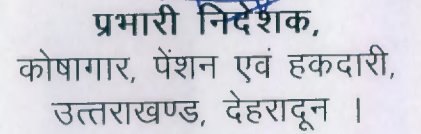 प्रभारी निदेशक,
कोषागार, पेंशन एवं हकदारी,
उत्तराखण्ड, देहरादून ।